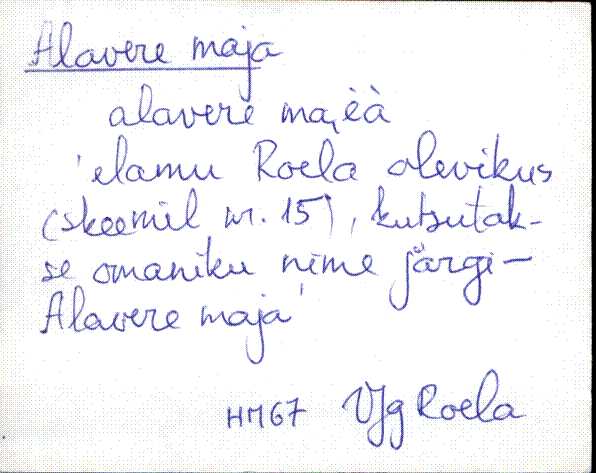 Alavere maja
alavere ma,ĕà
'elamu Roela alevikus
(skeemil nr. 15), kutsutak-
se omaniku nime järgi –
Alavere maja'
HM67 VJg Roela